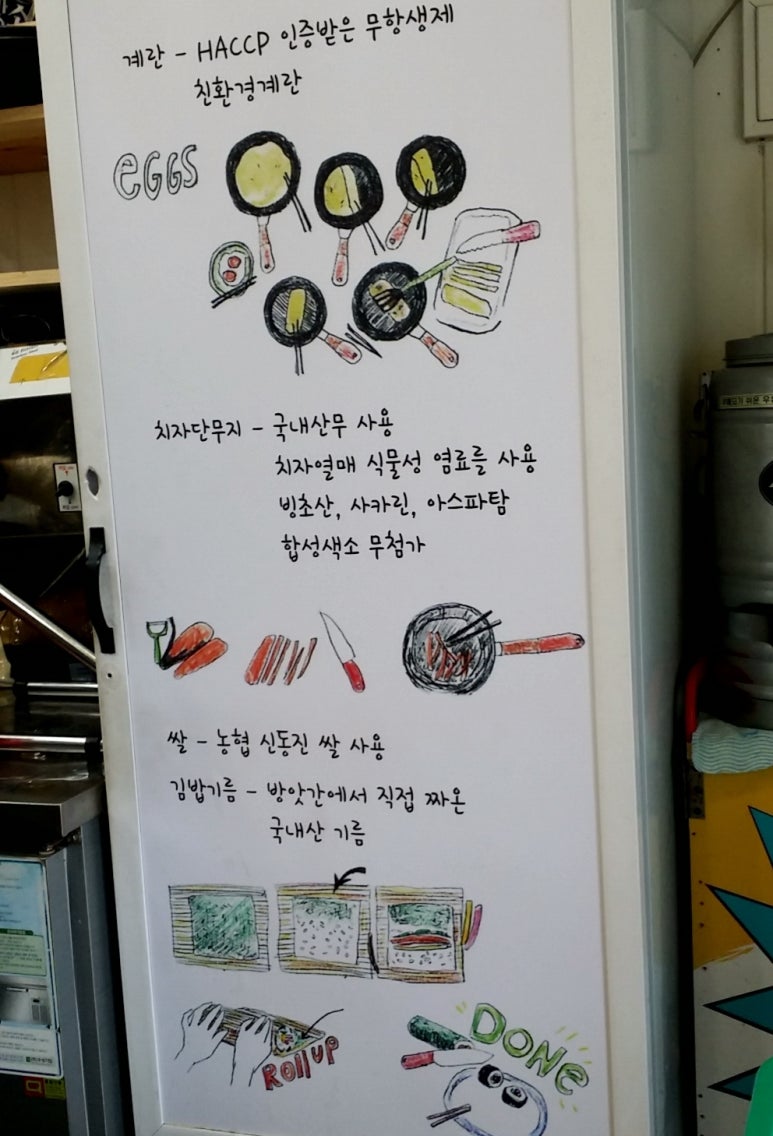 계란 - HACCP 인증받은 무항생제
친환경계란
EGGS
치자단무지 - 국내산무 사용
치자열매 식물성 염료를 사용
빙초산, 사카린, 아스파탐
합성색소 무첨가
쌀 - 농협 신동진 쌀 사용
김밥기름 - 방앗간에서 직접 짜온
국내산 기름
Roll up
DONE